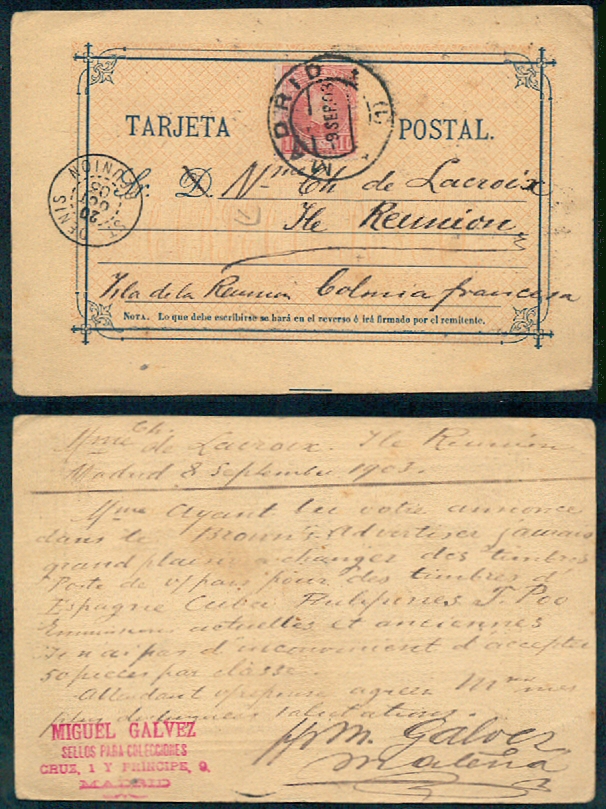 MADRID
9 SEP 03
10
TARJETA POSTAL.
ST DENIS
REUNION
20
OCT
03
Sr. D. Mme Ch de Lacroix
Ile Reunion
Isla de la Reunion Colonia francesa
NOTA. Lo que debe escribirse se hará en el reverso é irá firmado por el remitente.
Mme Ch. de Lacroix. Ile Reunion
Madrid 8 Septembre 1903.
Mme Ayant lu votre annonce
dans le Brown's Advertiser j'aurais
grand plaisir echanger des timbres
Poste de v/ pays pour des timbres d'
Espagne Cuba F. Poo
Emissions actuelles et anciennes
Je n'ai pas d'inconvenient d'accepter
50 pieces par classe.
Attendant v/ reponse agreez Mme mes
plus salutations.
M. Galvez
MIGUÉL GALVEZ
SELLOS PARA COLECCIONES
CRUZ, 1 Y PRÍNCIPE, 9.
MADRID